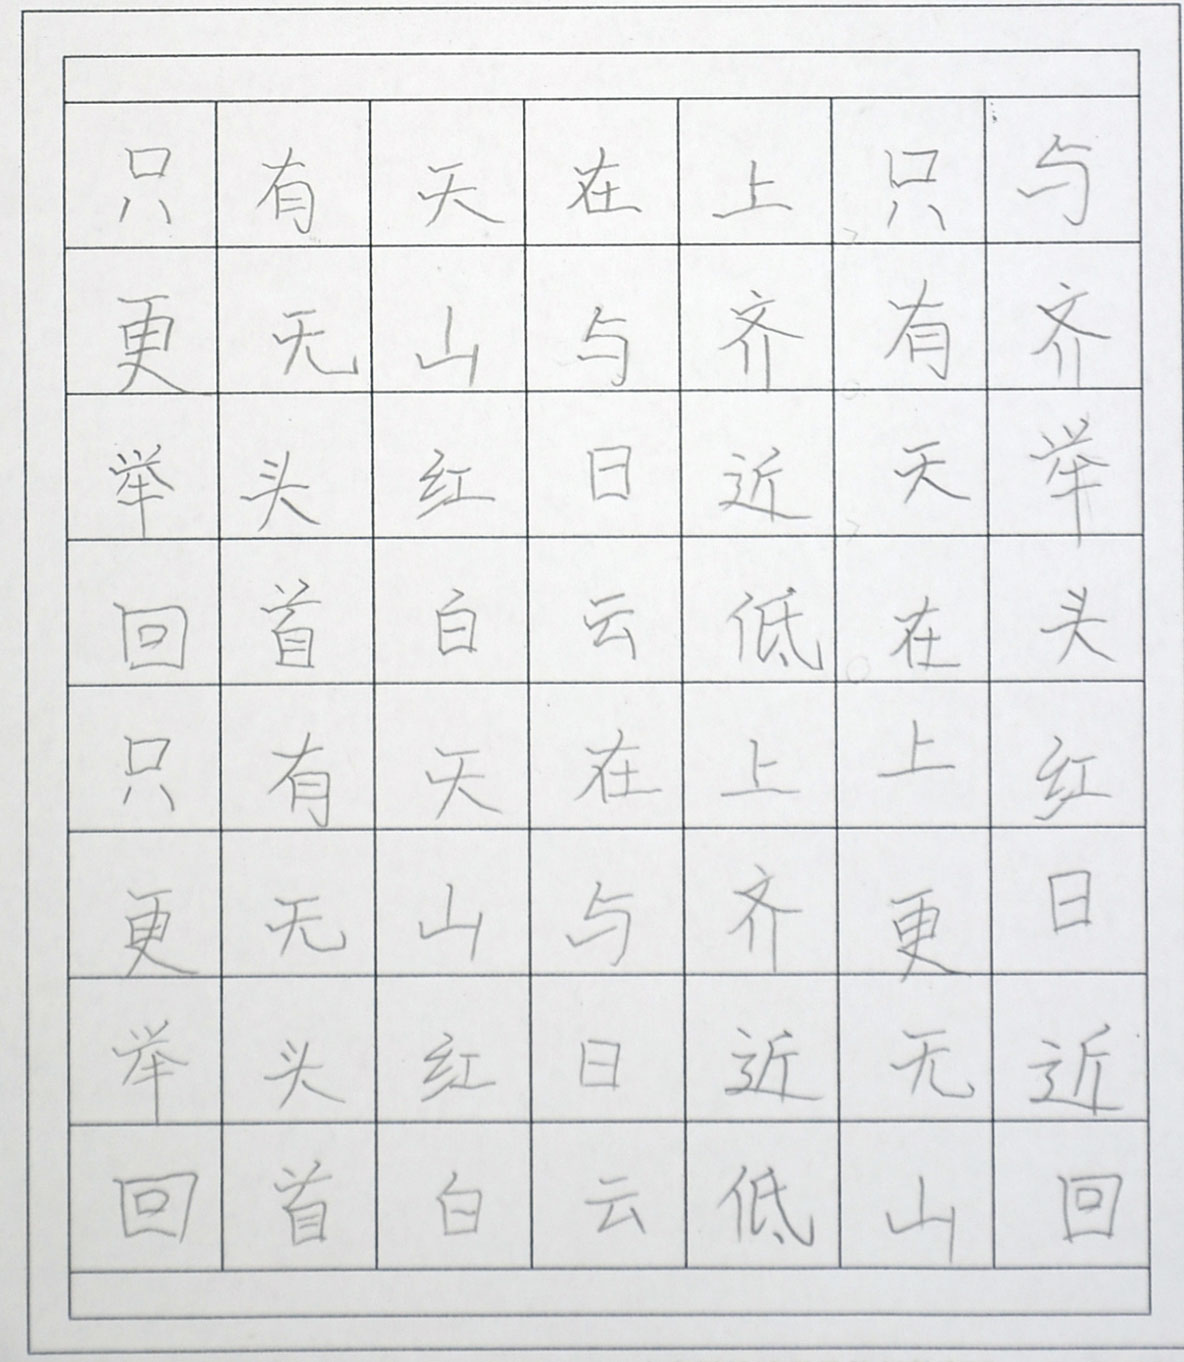 只有天在上只与
更无山与齐有齐
举头红日近天举
回首白云低在头
只有天在上上红
更无山与齐更日
举头红日近无近
回首白云低山回